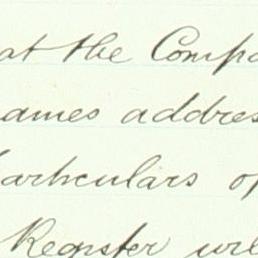 at the Compa
ames addres
articulars of
Register wil